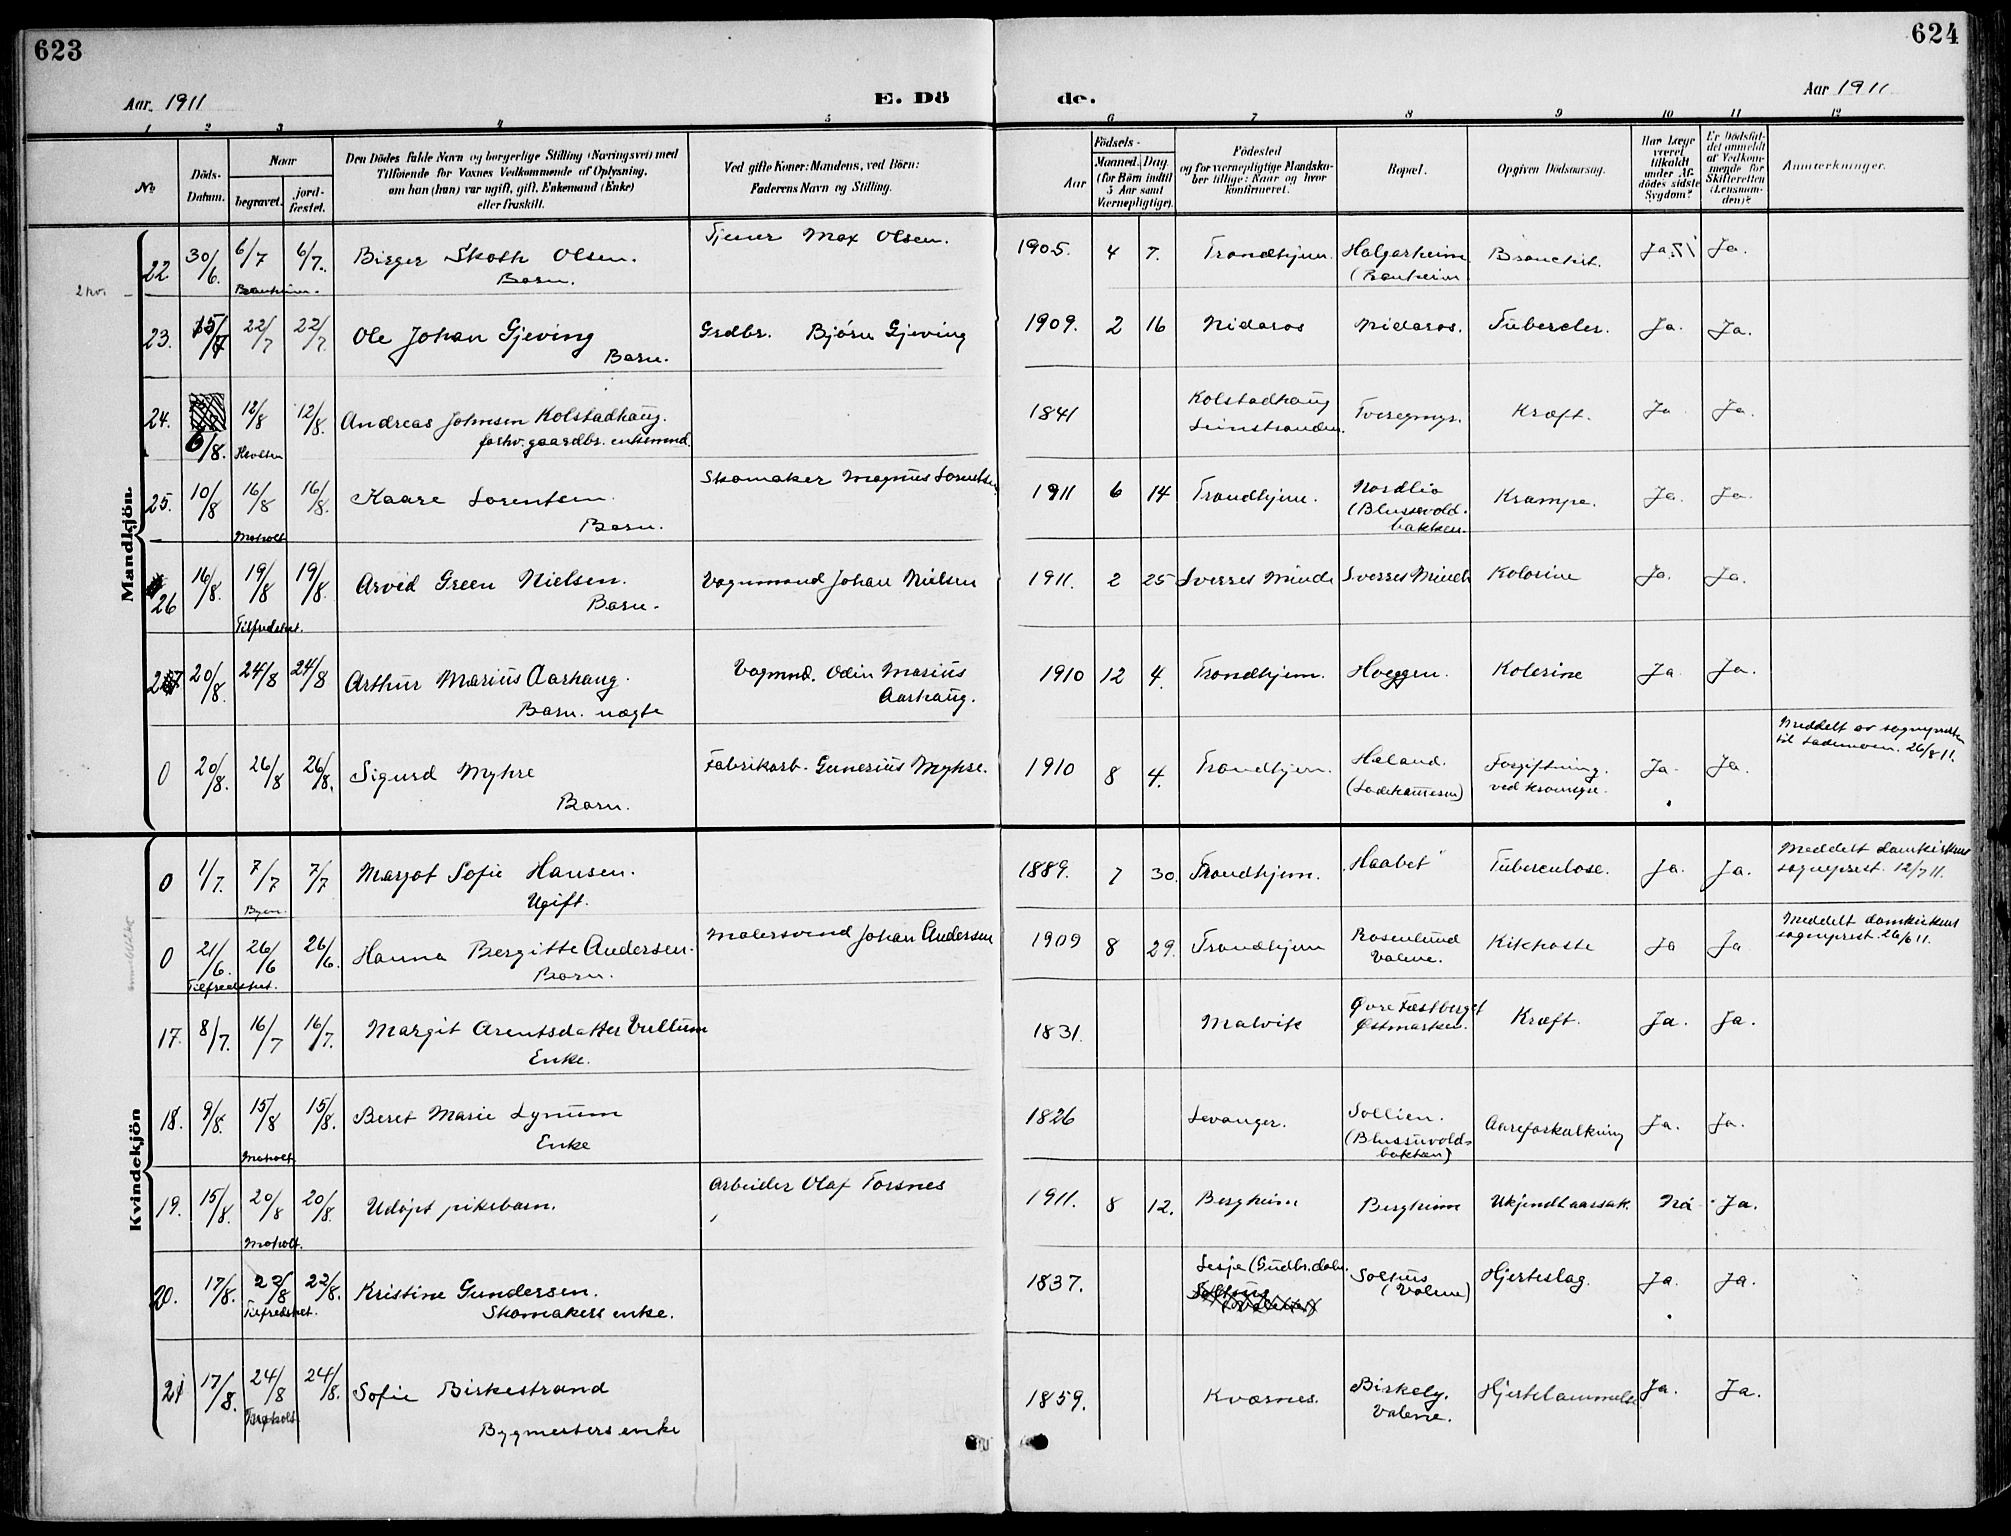 623
624
Aar 1911
E. Dö
de.
Aar 1911
1 2 3 4 5 6 7 8 9 10 11 12
No
Döds-Datum.
Naar
begravet.
jord-fæstet.
Den Dödes fulde Navn og borgerlige Stilling (Næringsvei) med
Tilföiende for Voxnes Vedkommende af Oplysning,
om han (hun) var ugift, gift, Enkemand (Enke)
eller fraskilt.
Ved gifte Koner: Mandens, ved Börn:
Faderens Navn og Stilling.
Födsels-
Aar
Maaned. Dag.
(for Börn indtil
5 Aar samt
Værnepligtige).
Födested
og for værnepligtige Mandska-
ber tillige: Naar og hvor
konfirmeret.
Bopæl.
Opgiven Dödsaarsag.
Har Læge
været
tilkaldt
under Af-
dödes sidste
Sygdom?
Er Dödsfal-
det anmeldt
af Vedkom-
mende for
Skifteretten
(Lensman-
den)?
Anmærkninger.
Mandkjön.
22 30/6. 6/7 6/7. Birger Skoth Olsen. Tjener Max Olsen. 1905. 4 7. Trondhjem Halgarheim Bronchit. Ja Ja.
Barn. (Bakheim
23. 15/7 22/7 22/7. Ole Johan Gjeving Grdbr. Bjørn Gjeving 1909. 2 16 Nidaros Nidaros. Tubercler. Ja. Ja.
Barn.
24. 6/8. 12/8 12/8. Andreas Johnsen Kolstadhaug. 1841 Kolstadhaug Kræft. Ja Ja.
forhv. gaardbr. enkemnd. Leinstranden.
25. 10/8 16/8 16/8. Kaare Lorentsen. Skomaker Magnus Lorentsen 1911 6 14 Trondhjem. Nordlia Krampe. Ja. Ja.
Moholt Barn. (Blussevold-
bakken.
26 16/8. 19/8 19/8. Arvid Green Nielsen. Vognmand Johan Nielsen 1911. 2 25 Sverres Minde Sverres Minde Kolerine Ja. Ja.
Tilfredshet. Barn.
27 20/8. 24/8 24/8 Arthur Marius Aarhaug. Vognmd. Odin Marius 1910 12 4. Trondhjem. Hoeggen. Kolerine Ja Ja.
Barn. uægte Aarhaug.
0 20/8. 26/8 26/8. Sigurd Myhre Fabrikarb. Gunerius Myhre. 1910 8 4. Trondhjem. Haland. Forgiftning. Ja Ja. Meddelt av sogneprsten
Barn. (Ladehammeren) ved krampe. til Lademoen. 26/8 11.
Kvindekjön
0 1/7. 7/7 7/7 Margot Sofie Hansen. 1889. 7 30. Trondhjem. Haabet Tuberculose. Ja. Ja. Meddelt Domkirkens
Byen. Ugift. sogneprest. 12/7 11.
0 21/6. 26/6 26/6. Hanna Bergitte Andersen. Malersvend Johan Andersen 1909 8 29. Trondhjem Rosenlund Kikhoste Ja Ja Meddelt domkirkens
Tilfredshet. Barn. Valene. sogneprest. 26/6 11.
17. 8/7. 16/7 16/7. Margit Arentsdatter Vullum 1831. Malvik Øvre Fæstberget Kræft. Ja. Ja.
Enke. Østmarken.
18. 9/8. 15/8 15/8. Beret Marie Lynum 1826 Levanger. Sollien. Aareforkalkning Ja. Ja.
Moholt Enke (Blussuvolds-
bakken)
19. 15/8. 20/8 20/8. Udøpt pikebarn. Arbeider Olaf Torsnes 1911. 8 12. Bergheim Bergheim Ukjendt aarsak. Nei Ja.
Moholt.
20. 17/8. 22/8 22/8. Kristine Gundersen. 1837. Lesje (Gudbr.dalen. Solhus Hjerteslag. Ja. Ja.
Tilfredshet. Skomakers enke. (Valene)
21 17/8. 24/8 24/8. Sofie Birkestrand 1859. Kværnes. Birkely. Hjertelammelse Ja. Ja.
Bygmesters enke Valene.